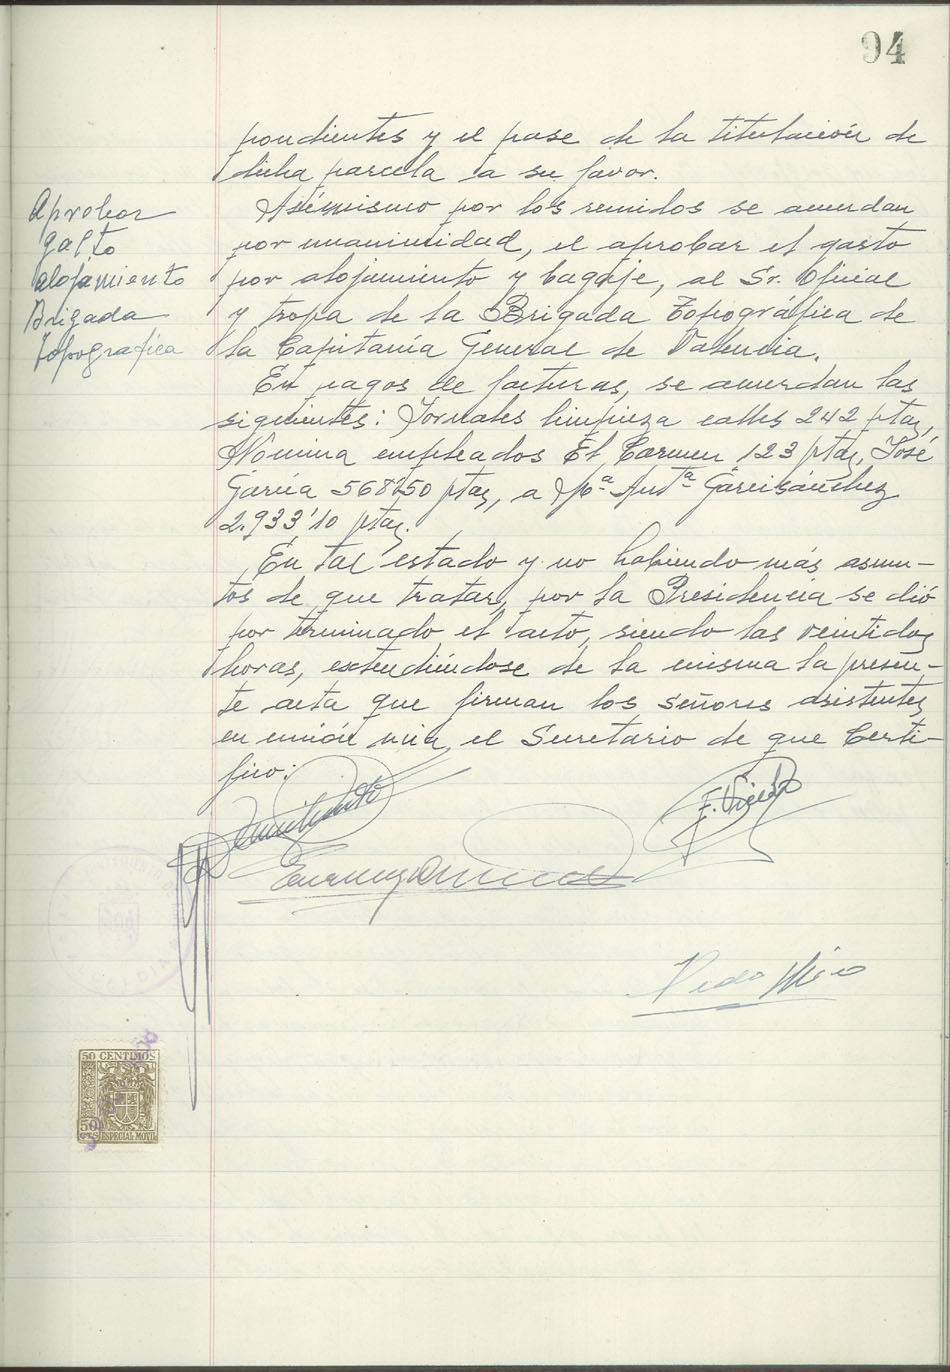 94
pondientes y el pase de la titulación de
dicha parcela a su favor.
Aprobar
gasto
alojamiento
Brigada
Topografica
Asímismo por los reunidos se acuerdan
por unanimidad, el aprobar el gasto
por alojamiento y bagaje, al Sr. Oficial
y tropa de la Brigada Topográfica de
la Capitanía General de Valencia.
En pagos de facturas, se acuerdan las
siguientes: Jornales limpieza calles 242 ptas,
Nómina empleados El Carmen 123 ptas, José
García ptas, a Mª Antª Garcisánchez
2.933'10 ptas.
En tal estado y no habiendo más asun-
tos de que tratar, por la Presidencia se dió
por terminado el acto, siendo las veintidos
horas, extendiéndose de la misma la presen-
te acta que firman los señores asistentes
en unión mia, el Secretario de que Certi-
fico:
50 CENTIMOS
50
CTS ESPECIAL MOVIL